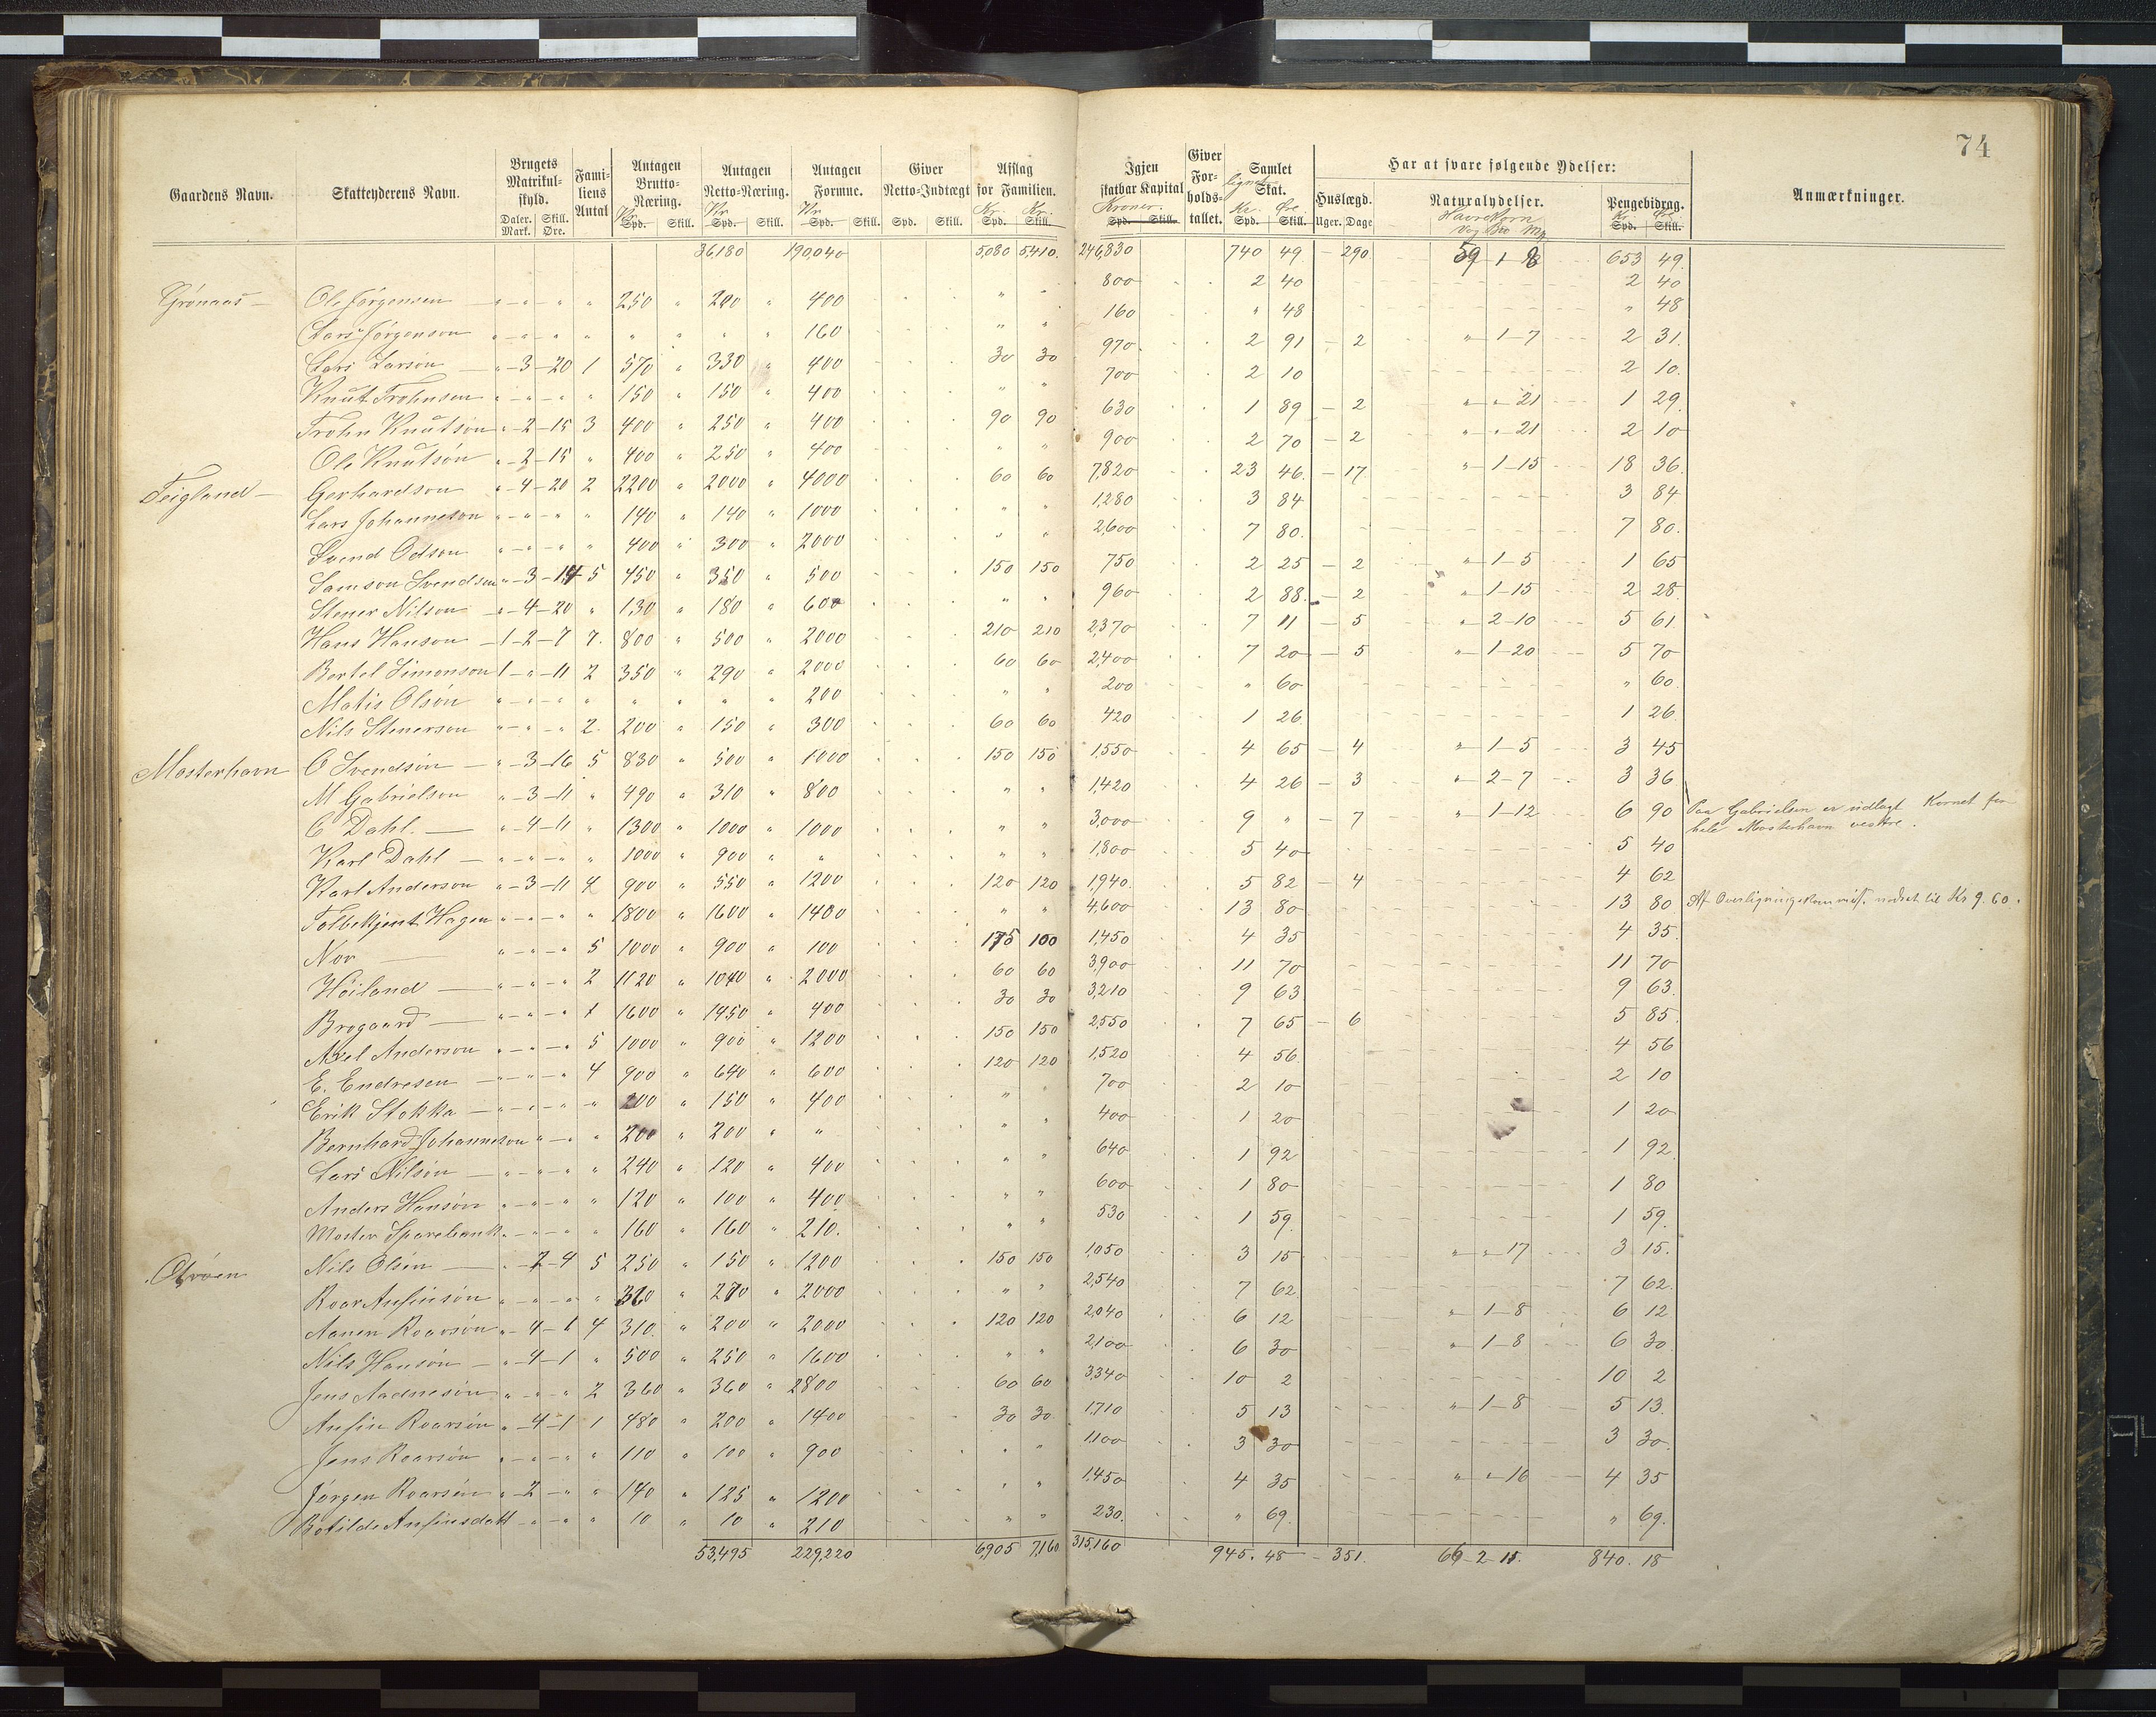 74
Gaardens Navn. Skatteyderens Navn. Brugets Matrikul-skyld. Daler. Mark. Skill. Øre. Familiens Antal Antagen Brutto-Næring. Kr. Spd. Skill. Antagen Netto-Næring. Kr. Spd. Skill. Antagen Formue. Kr. Spd. Skill. Giver Netto-Indtægt Spd. Skill. Afslag for Familien. Kr. Spd. Kr. Skill. Igjen skatbar Kapital Kroner. Spd. Skill. Giver For-holds-tallet. Samlet lignet Skat. Kr. Spd. Øre. Skill. Har at svare følgende Ydelser: Huslægd. Uger. Dage Naturalydelser. Havre Korn Vog Bis Mk Pengebidrag. Kr. Spd. Øre. Skill. Anmærkninger.
36,180 190,040 5,080 5,410. 246,830 740 49 - 290 59 1 8 653 49.
Grønaas - Ole Jørgensen " - " - " " 250 " 200 " 400 " " 800 2 40 2 40
Lars Jørgenson " - " - " " " " " " 160 " " 160 " 48 " 48
Lars Larson " - 3 - 20 1 570 " 330 " 400 30 30 970 2 91 - 2 " - 1 - 7 2 31.
Knut Trohnsen " - " - " " 150 " 150 " 400 " " 700 2 10 2 10.
Trohn Knutson " - 2 - 15 3 400 " 250 " 400 90 90 630 1 89 - 2 " - " - 21 1 29.
Ole Knutson " - 2 - 15 " 400 " 250 " 400 " " 900 2 70 - 2 " - " - 21 2 10
Teigland - Gerhardson " - 4 - 20 2 2200 " 2000 " 4000 60 60 7,820 23 46. - 17 " - 1 - 15 18 36.
Lars Johanneson " - " - " " 140 " 140 " 1000 " " 1,280 3 84 3 84
Svend Odson " - " - " " 400 " 300 " 2000 " " 2,600 7 80. 7 80.
Samson Svendsen " - 3 - 14 5 450 " 350 " 500 150 150 750 2 25 - 2 " - 1 - 5 1 65
Stener Nilson " - 4 - 20 " 130 " 180 " 600 " " 960 2 88. - 2 " 1 - 15 2 28
Hans Hanson - 1 - 2 - 7 7. 800 " 500 " 2000 210 210 2,370 7 11 - 5 " 2 - 10 5 61
Bertel Simonson 1 - " - 11 2 350 " 290 " 2000 60 60 2,400 7 20 - 5 " - 1 - 20 5 70
Matis Olson " - " - " " " " " " 200 " " 200 " 60 " 60
Nils Stenerson " - " - " 2. 200 " 150 " 300 60 60 420 1 26 1 26
Mosterhavn O Svendson - " - 3 - 16 5 830 " 500 " 1000 150 150 1,550 4 65 - 4 " - 1 - 5 3 45
M Gabrielson " - 3 - 11 " 490 " 310 " 800 " " 1,420 4 26 - 3 " - 2 - 7 3 36
C Dahl. - " - 4 - 11 " 1300 " 1000 " 1000 " " 3,000 9 " - 7 " - 1 - 12 6 90 Paa Gabrielsen er udlagt Kornet for
hele Mosterhavn vestre.
Karl Dahl - " - " - " " 1000 " 900 " " " " 1,800 5 40 5 40
Karl Anderson " - 3 - 11 4 900 " 550 " 1200 120 120 1,940 5 82 - 4 4 62
Toldbetjent Hagen " - " - " " 1800 " 1600 " 1400 " " 4,600 13 80 13 80 Af Overligningskommis. nedsat til Kr 9.60.
Nor - " - " - " 5 1000 " 900 " 100 175 100 1,450 4 35 4 35.
Höiland - " - " - " 2 1120 " 1040 " 2000 60 60 3,900 11 70 11 70
Brogaard - " - " - " 1 1600 " 1450 " 400 30 30 3,210 9 63 9 63.
Axel Anderson " - " - " 5 1000 " 900 " 1200 150 150 2,550 7 65 - 6 5 85.
E. Endresen - " - " - " 4 900 " 640 " 600 120 120 1,520 4 56. 4 56
Erik Stokka - " - " - " " 200 " 150 " 400 " " 700 2 10 2 10
Bernhard Johanneson " - " " 200 " 200 " " " " 400 1 20 1 20
Lars Nilson - " - " - " " 240 " 120 " 400 " " 640 1 92 1 92.
Anders Hanson " - " - " " 120 " 100 " 400 " " 600 1 80 1 80
Moster Sparebank " - " - " " 160 " 160 " 210. " " 530 1 59. 1 59.
Nils Olson - " - 2 - 4 5 250 " 150 " 1200 150 150 1,050 3 15 " " - 17 3 15.
Roar Anfinson " - " - " " 320 " 270 " 2000 " " 2,540 7 62 7 62.
Aanen Roarson " - 4 - 1 4 310. " 200 " 2000 120 120 2,040 6 12 " 1 - 8 6 12
Nils Hanson - " - 4 - 1 " 500 " 250 " 1600 " " 2,100 6 30 " 1 - 8 6 30.
Jens Aadneson " - " - " 2 360 " 360 " 2800 60 60 3,340 10 2 10 2
Anfin Roarson " - 4 - 1 1 480 " 200 " 1400 30 30 1,710 5 13 " 1 - 8 5 13.
Jens Roarson " - " - " " 110 " 100 " 900 " " 1,100 3 30 3 30.
Jørgen Roarson " - 2 - " " 140 " 125 " 1200 " " 1,450 4 35 " " - 16 4 35
Botilde Anfinsdatt " - " " 10 " 10 " 210 " " 230. " 69. " 69.
53,495 229,220 6,905 7,160 315,160 945. 48 - 351. 66 - 2 - 15. 840. 18